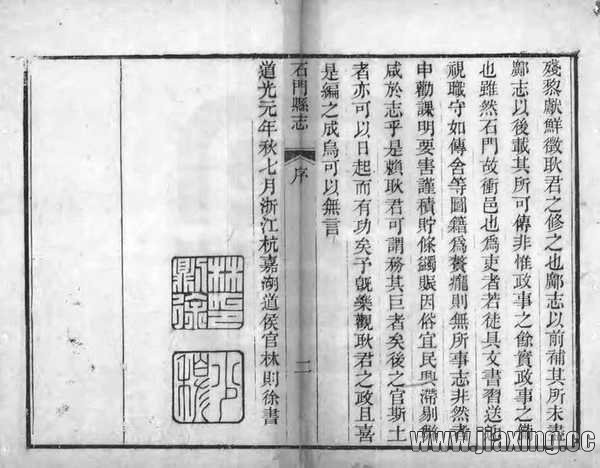 殘黎獻鮮徵耿君之修之也鄺志以前補其所未盡
鄺志以後載其所可傳非惟政事之餘資政事之
也雖然石門故衝邑也為吏者若徒具文書習送
視職守如傳舍等圖籍為贅疣則無所事志非然者
申勸課明要害謹積貯條蠲賑因俗宜民興滯剔
咸於志乎是賴耿君可謂務其巨者矣後之官斯土
者亦可以日起而有功矣予旣樂觀耿君之政且喜
是編之成烏可以無言
石門縣志
序
二
道光元年秋七月浙江杭嘉湖道侯官林則徐書
林印
則徐
少穆
www.jiaxing.cc